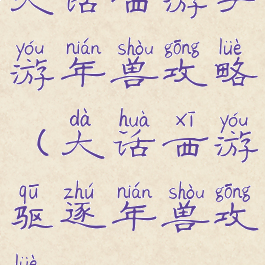 大话西游手
yóu nián shòu gōng lüè
游年兽攻略
dà huà xī yóu
（大话西游
qū zhú nián shòu gōng
驱逐年兽攻
lüè